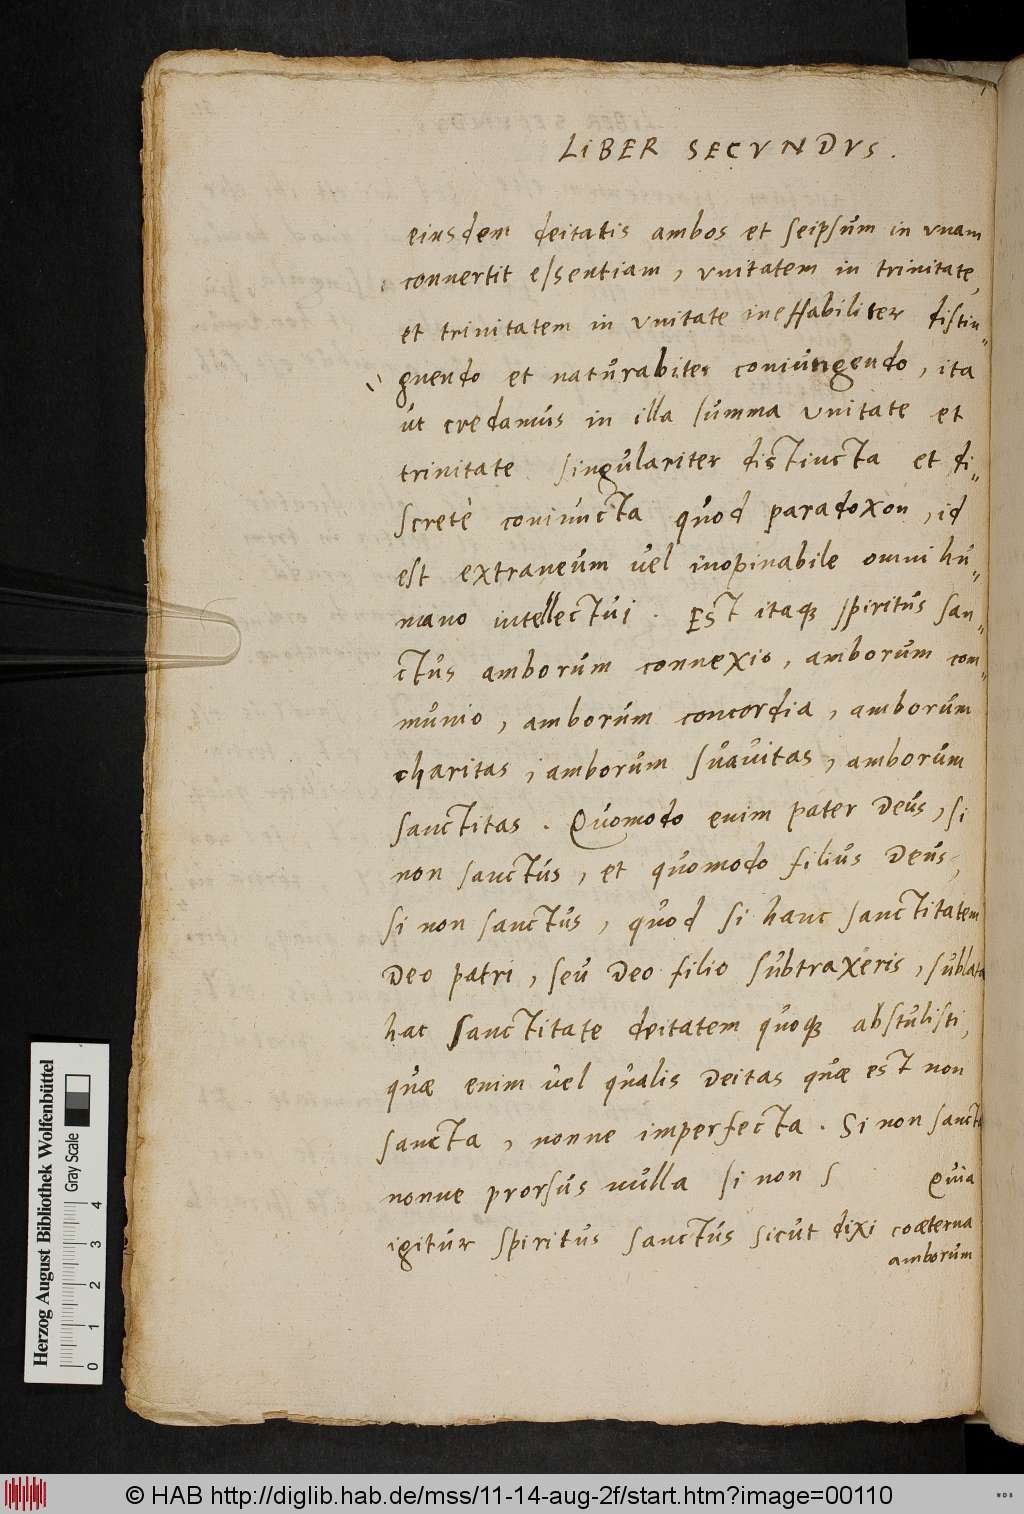 LIBER SECVNDVS.
eiusdem deitatis ambos et seipsum in vnam
conuertit essentiam, vnitatem in trinitate,
et trinitatem in vnitate ineffabiliter distin„
guendo et naturabiter coniungendo, ita
ut credamus in illa summa vnitate et
trinitate singulariter distincta et di„
screte coniuncta quod paradoxon, id
est extraneum vel inopinabile omni hu„
mano intellectui. Est itaq₃ spiritus san„
ctus amborum connexio, amborum com„
munio, amborum concordia, amborum
charitas, amborum suavitas, amborum
sanctitas. Quomodo enim pater Deus, si
non sanctus, et quomodo filius Deus,
si non sanctus, quod si hanc sanctitatem
Deo patri, seu Deo filio subtraxeris, sublata
hac sanctitate deitatem quoq₃ abstulisti,
quæ enim vel qualis Deitas quæ est non
sancta, nonne imperfecta. Si non sancta
nonne prorsus nulla si non s Quia
igitur spiritus sanctus sicut dixi coæterna
amborum
Herzog August Bibliothek Wolfenbüttel
Gray Scale
0 1 2 3 4
© HAB http://diglib.hab.de/mss/11-14-aug-2f/start.htm?image=00110